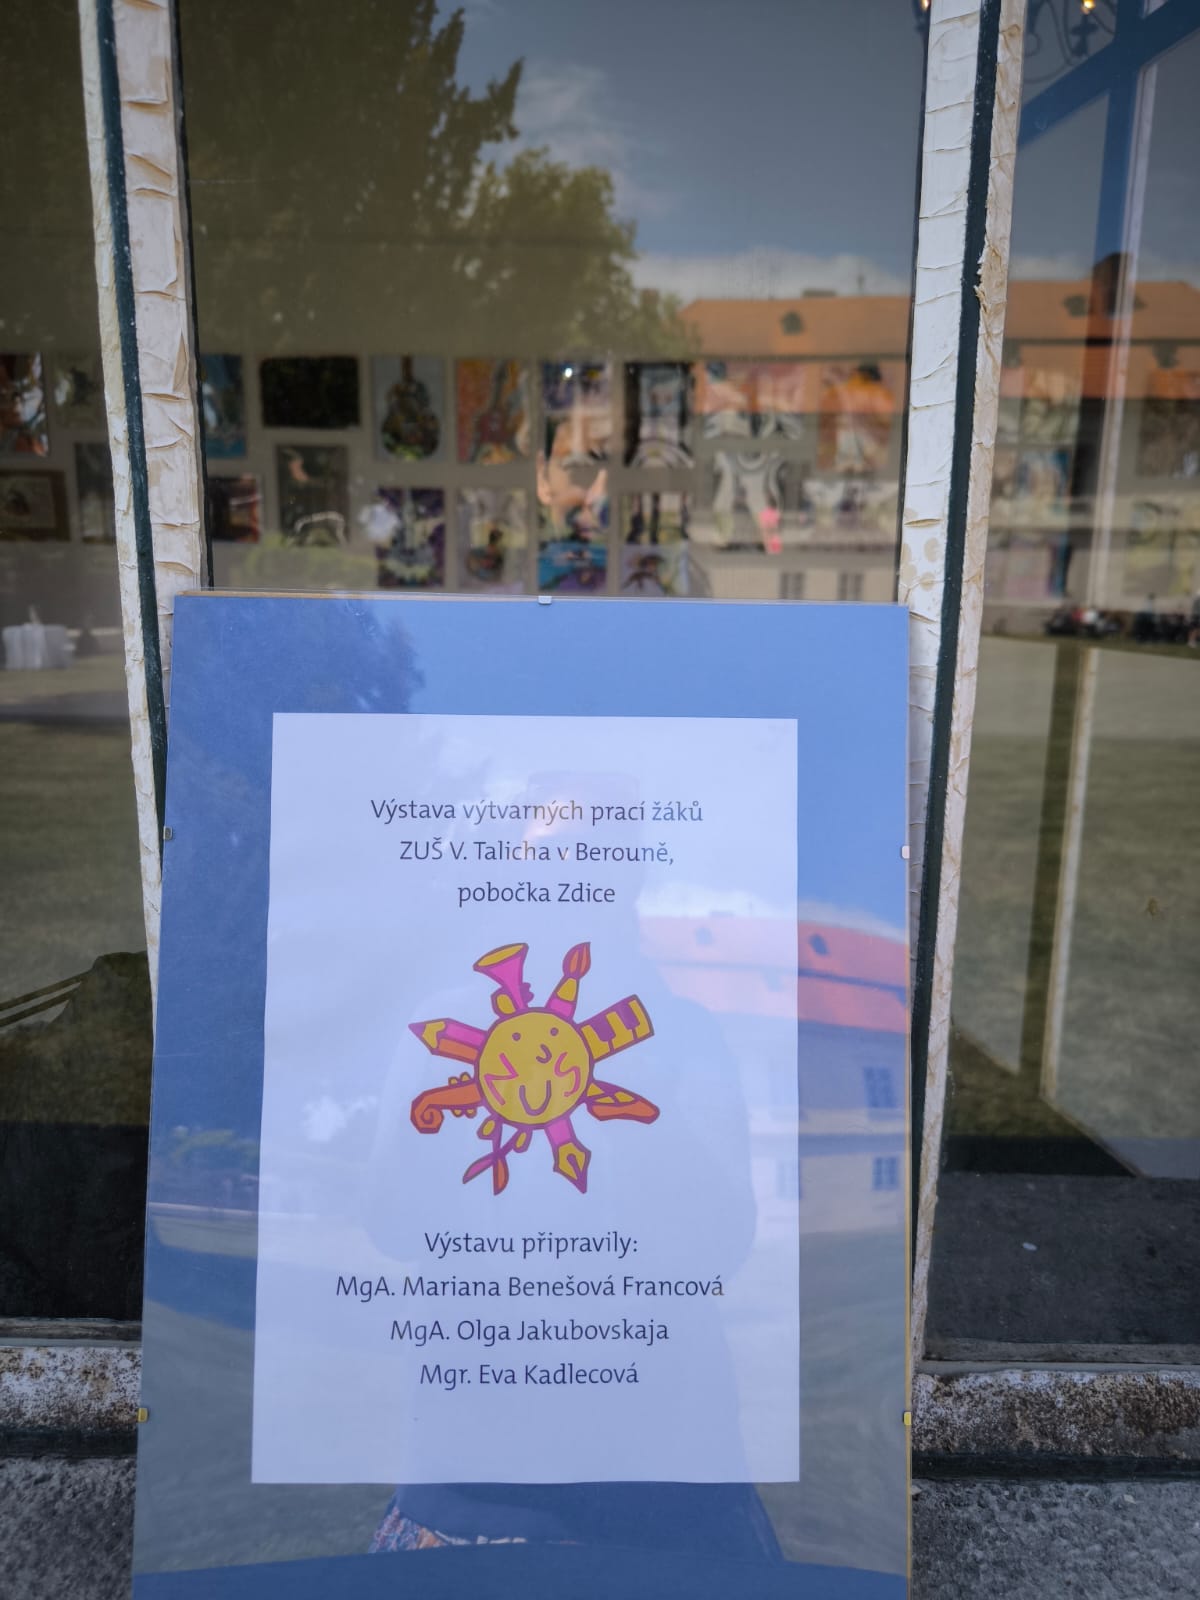 Výstava výtvarných prací žáků
ZUŠ V. Talicha v Berouně,
pobočka Zdice
ZUŠ
Výstavu připravily:
MgA. Mariana Benešová Francová
MgA. Olga Jakubovskaja
Mgr. Eva Kadlecová